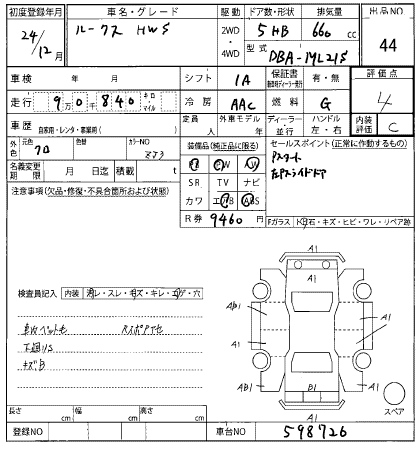 初度登録年月
車名・グレード
駆動
ドア数・形状
排気量
出品NO
24/12月
ルークス HWS
2WD
4WD
5HB
660
cc
型式
DBA-ML21S
44
車検
年
月
シフト
IA
保証書
有・無
評価点
走行
9万0千840
キロ
マイル
冷房
AAC
燃料
G
4
車歴
自家用・レンタ・事業用( )
定員
人
外車モデル
年
ディーラー
並行
ハンドル
左・右
内装
評価
C
外色
元色
クロ
色替
カラーNO
ZJ3
装備品(純正品に限る)
セールスポイント(正常に作動するもの)
名義変更
期限
月
日迄
積載
t
PS
PW
AW
Pスタート
左Pスライドドア
注意事項(欠品・修復・不具合箇所および状態)
SR
TV
ナビ
カワ
エアB
ABS
R券
9460
円
Fガラス
トビ石・キズ・ヒビ・ワレ・リペア跡
検査員記入
内装
コゲ・スレ・キズ・キレ・穴
下廻リS
キズB
A1
A1
AB1
A1
A1
A1
AB1
B1
A1
A1
スペア
長さ
cm
幅
cm
高さ
cm
登録NO
車台NO
598726